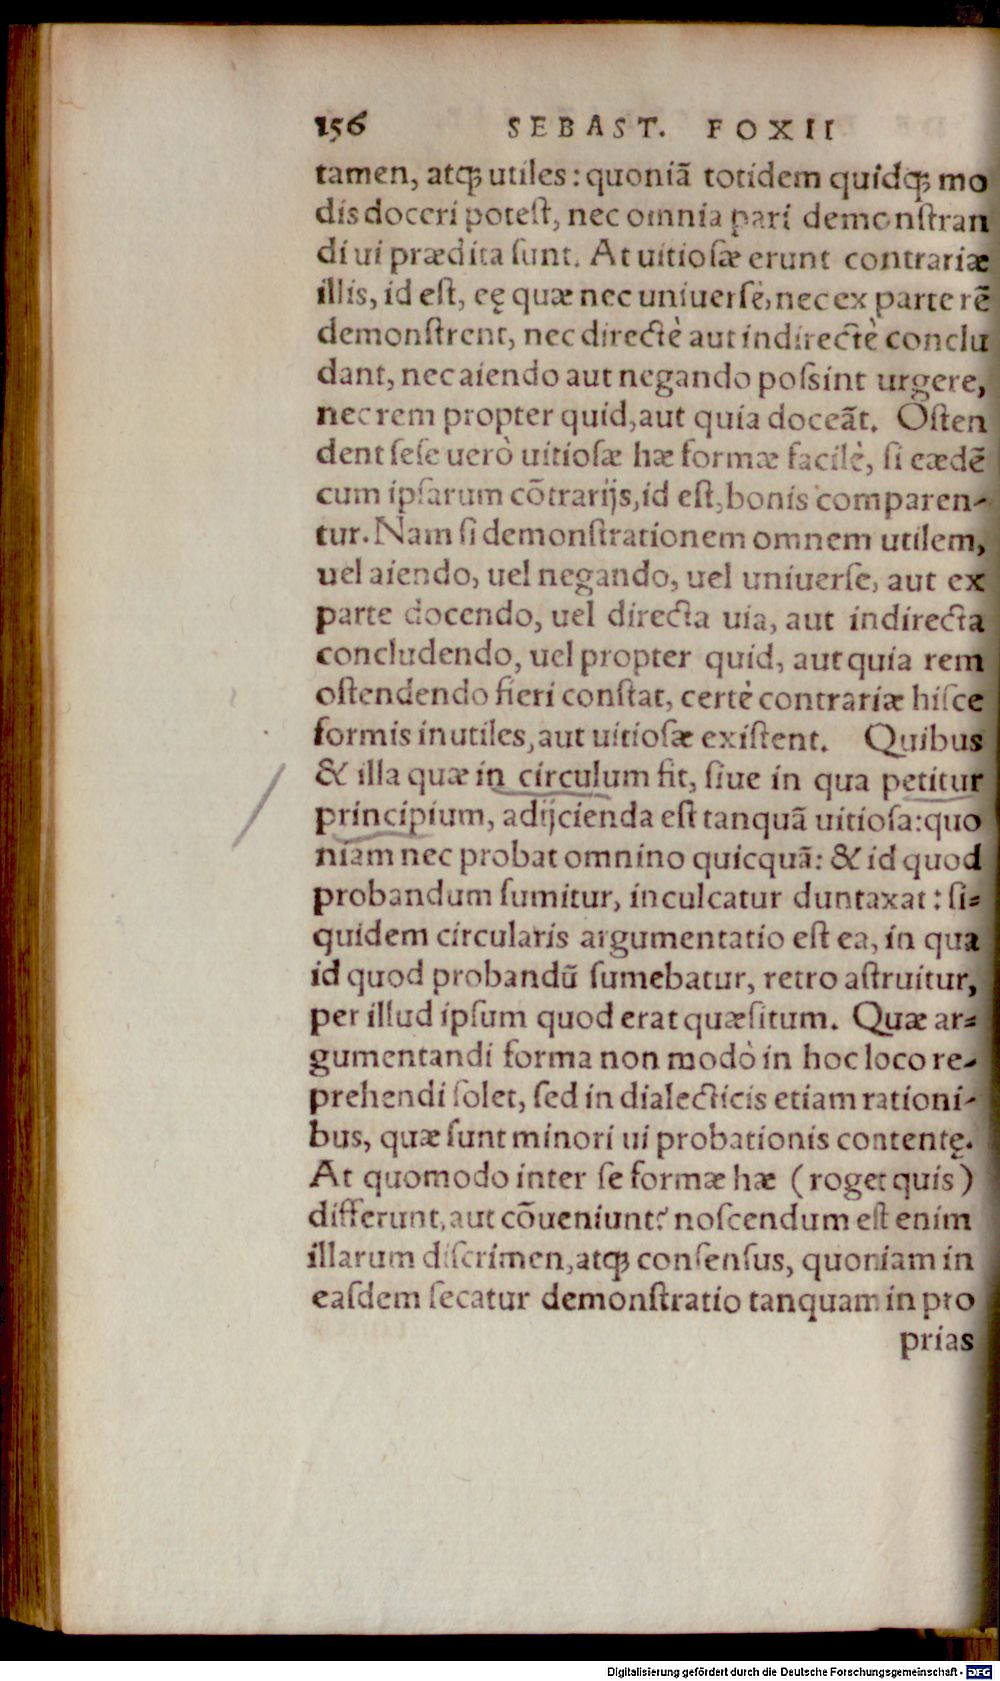 156 SEBAST. FOXII
tamen, atꝗ; utiles: quoniã totidem quidꝗ; mo
dis doceri poteſt, nec omnia pari demonſtran
di ui prædita ſunt. At uitioſæ erunt contrariæ
illis, id eſt, eę quæ nec uniuerſè, nec ex parte rẽ
demonſtrent, nec directè aut indirectè conclu
dant, nec aiendo aut negando poſsint urgere,
nec rem propter quid, aut quia doceãt. Oſten
dent ſeſe uerò uitioſæ hæ formæ facilè, ſi eædẽ
cum ipſarum cõtrarijs, id eſt, bonis comparen-
tur. Nam ſi demonſtrationem omnem utilem,
uel aiendo, uel negando, uel uniuerſe, aut ex
parte docendo, uel directa uia, aut indirecta
concludendo, uel propter quid, aut quia rem
oſtendendo fieri conſtat, certè contrariæ hiſce
formis inutiles, aut uitioſæ exiſtent. Quibus
& illa quæ in circulum fit, ſiue in qua petitur
principium, adijcienda eſt tanquã uitioſa: quo
niam nec probat omnino quicquã: & id quod
probandum ſumitur, inculcatur duntaxat: ſi-
quidem circularis argumentatio eſt ea, in qua
id quod probandũ ſumebatur, retro aſtruitur,
per illud ipſum quod erat quæſitum. Quæ ar-
gumentandi forma non modò in hoc loco re-
prehendi ſolet, ſed in dialecticis etiam rationi-
bus, quæ ſunt minori ui probationis contentę.
At quomodo inter ſe formæ hæ (roget quis)
differunt, aut cõueniunt? noſcendum eſt enim
illarum diſcrimen, atꝗ; conſenſus, quoniam in
eaſdem ſecatur demonſtratio tanquam in pro
prias
Digitalisierung gefördert durch die Deutsche Forschungsgemeinschaft - DFG